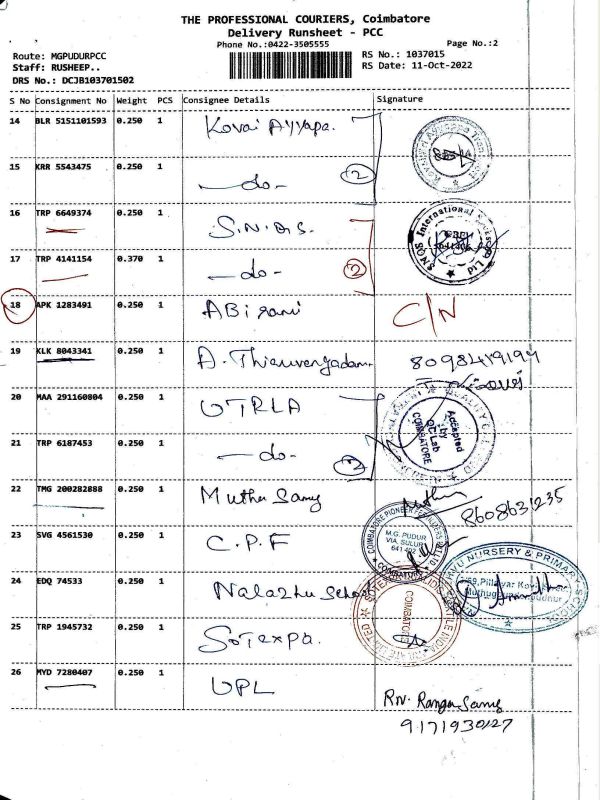 THE PROFESSIONAL COURIERS, Coimbatore
Delivery Runsheet - PCC
Phone No.:0422-3505555
Page No.:2
Route: MGPUDURPCC
RS No.: 1037015
Staff: RUSHEEP..
RS Date: 11-Oct-2022
DRS No.: DCJB103701502
S No Consignment No Weight PCS Consignee Details Signature
14 BLR 5151101593 0.250 1 Kovai Ayyapa.
15 KRR 5543475 0.250 1 -do- 2
16 TRP 6649374 0.250 1 S.N.Q.S.
SNQS International
17 TRP 4141154 0.370 1 -do- 2
18 APK 1283491 0.250 1 ABirami C/N
19 KLK 8043341 0.250 1 A. Thiruvengadam 8098419194
20 MAA 291160804 0.250 1 UTRLA
Accepted
by
QC Lab
COIMBATORE
21 TRP 6187453 0.250 1 -do- 2
22 TMG 200282888 0.250 1 Muthu Samy Muthu 8608631235
23 SVG 4561530 0.250 1 C.P.F
COIMBATORE PIONEER
M.G. PUDUR
VIA. SULUR
641 402
COIMBATORE
24 EDQ 74533 0.250 1 Nalazhu School
NURSERY & PRIMARY SCHOOL
25 TRP 1945732 0.250 1 Sotexpa.
COIMBATORE
26 MYD 7280407 0.250 1 UPL
Rn. Ranga Samy
9171930127